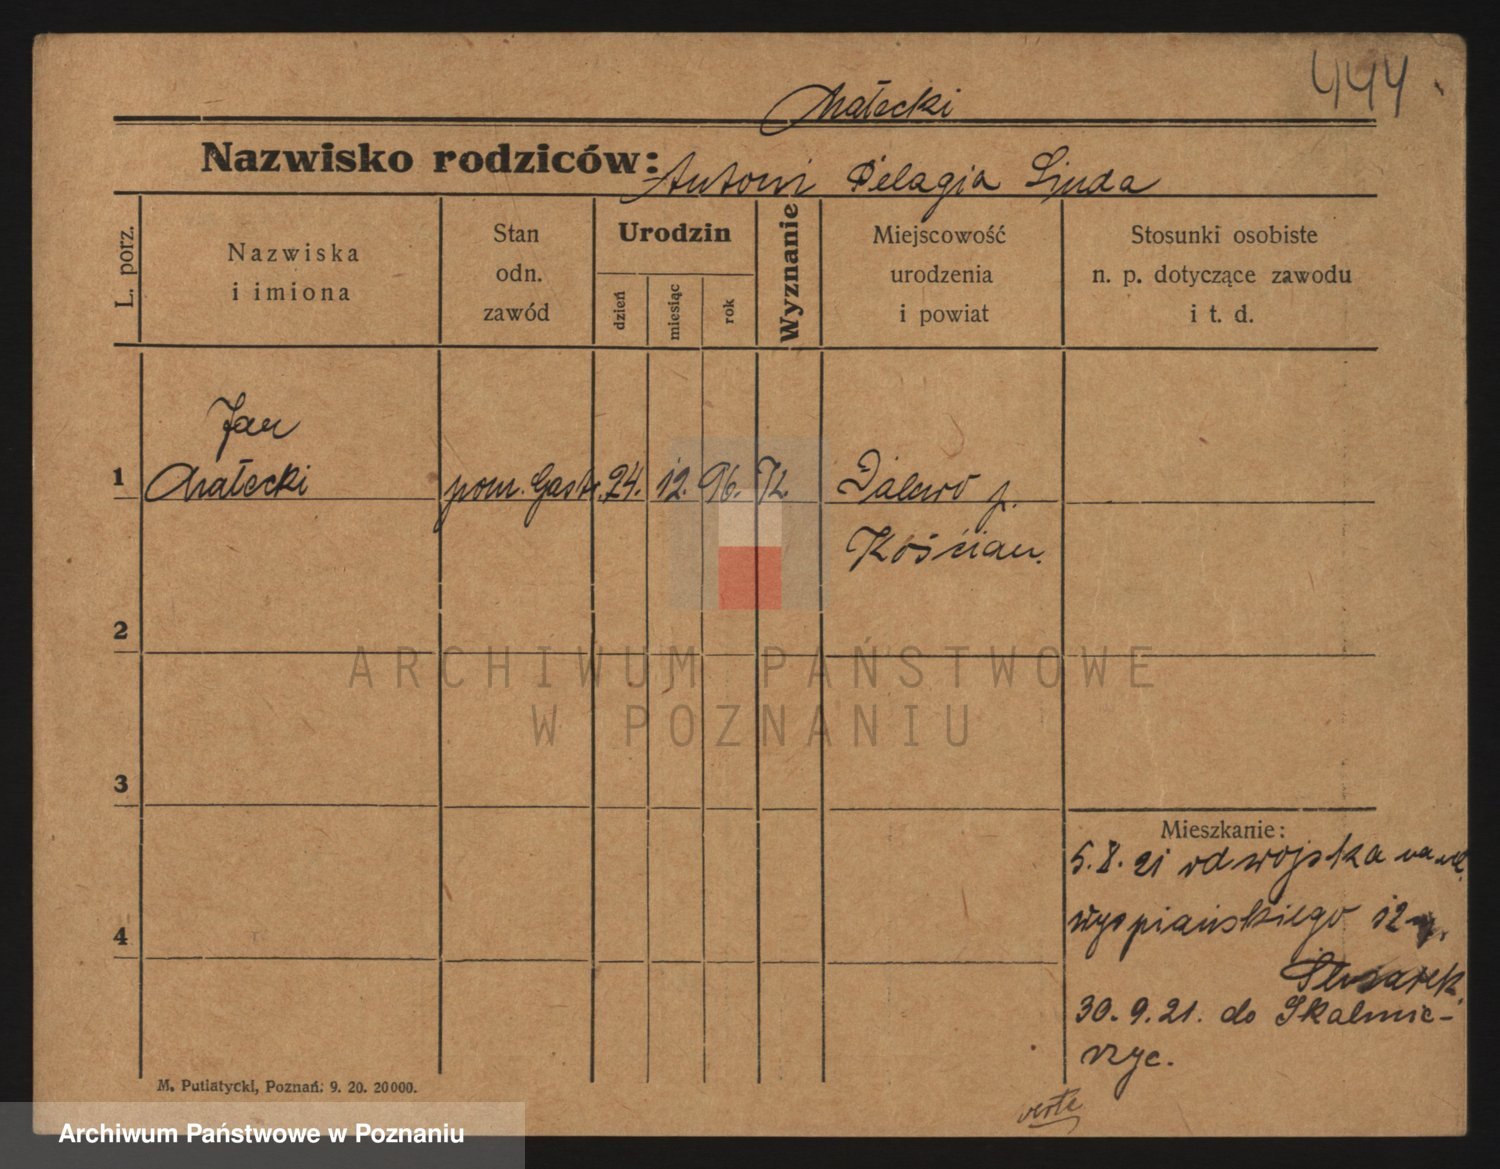 444
Małecki
Nazwisko rodziców: Antoni Pelagia Sjuda
L. porz.
Nazwiska
i imiona
Stan
odn.
zawód
Urodzin
dzień
miesiąc
rok
Wyznanie
Miejscowość
urodzenia
i powiat
Stosunki osobiste
n. p. dotyczące zawodu
i t. d.
Jan
1 Małecki pom. Gastr. 24. 12. 96. Kościan.
2
3
4
ARCHIWUM PAŃSTWOWE
W POZNANIU
Mieszkanie:
21 od wojska na ul.
Wyspiańskiego 12
30. 9. 21. do Skalmie-
rzyc.
verte
M. Putiatycki, Poznań. 9. 20. 20000.
Archiwum Państwowe w Poznaniu